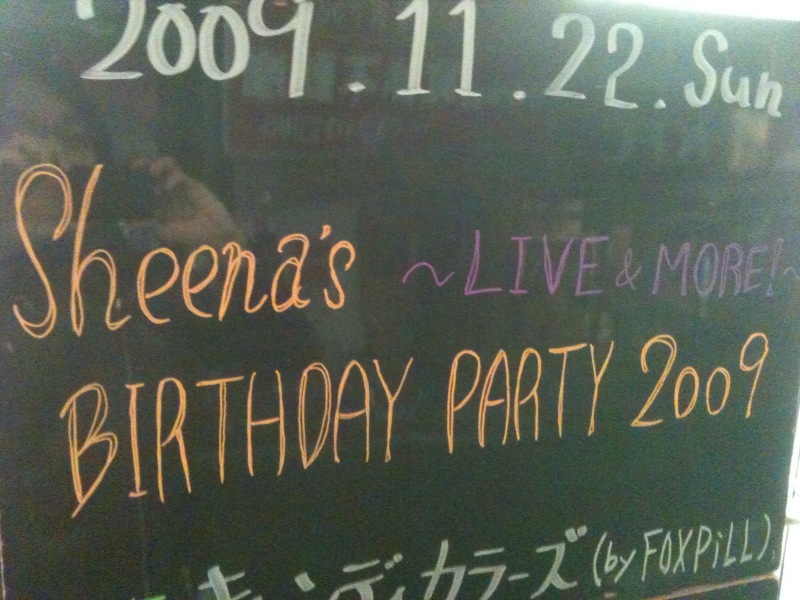 2009.11.22.Sun
Sheena's ～LIVE & MORE!～
BIRTHDAY PARTY 2009
キャンディカラーズ (by FOXPiLL)